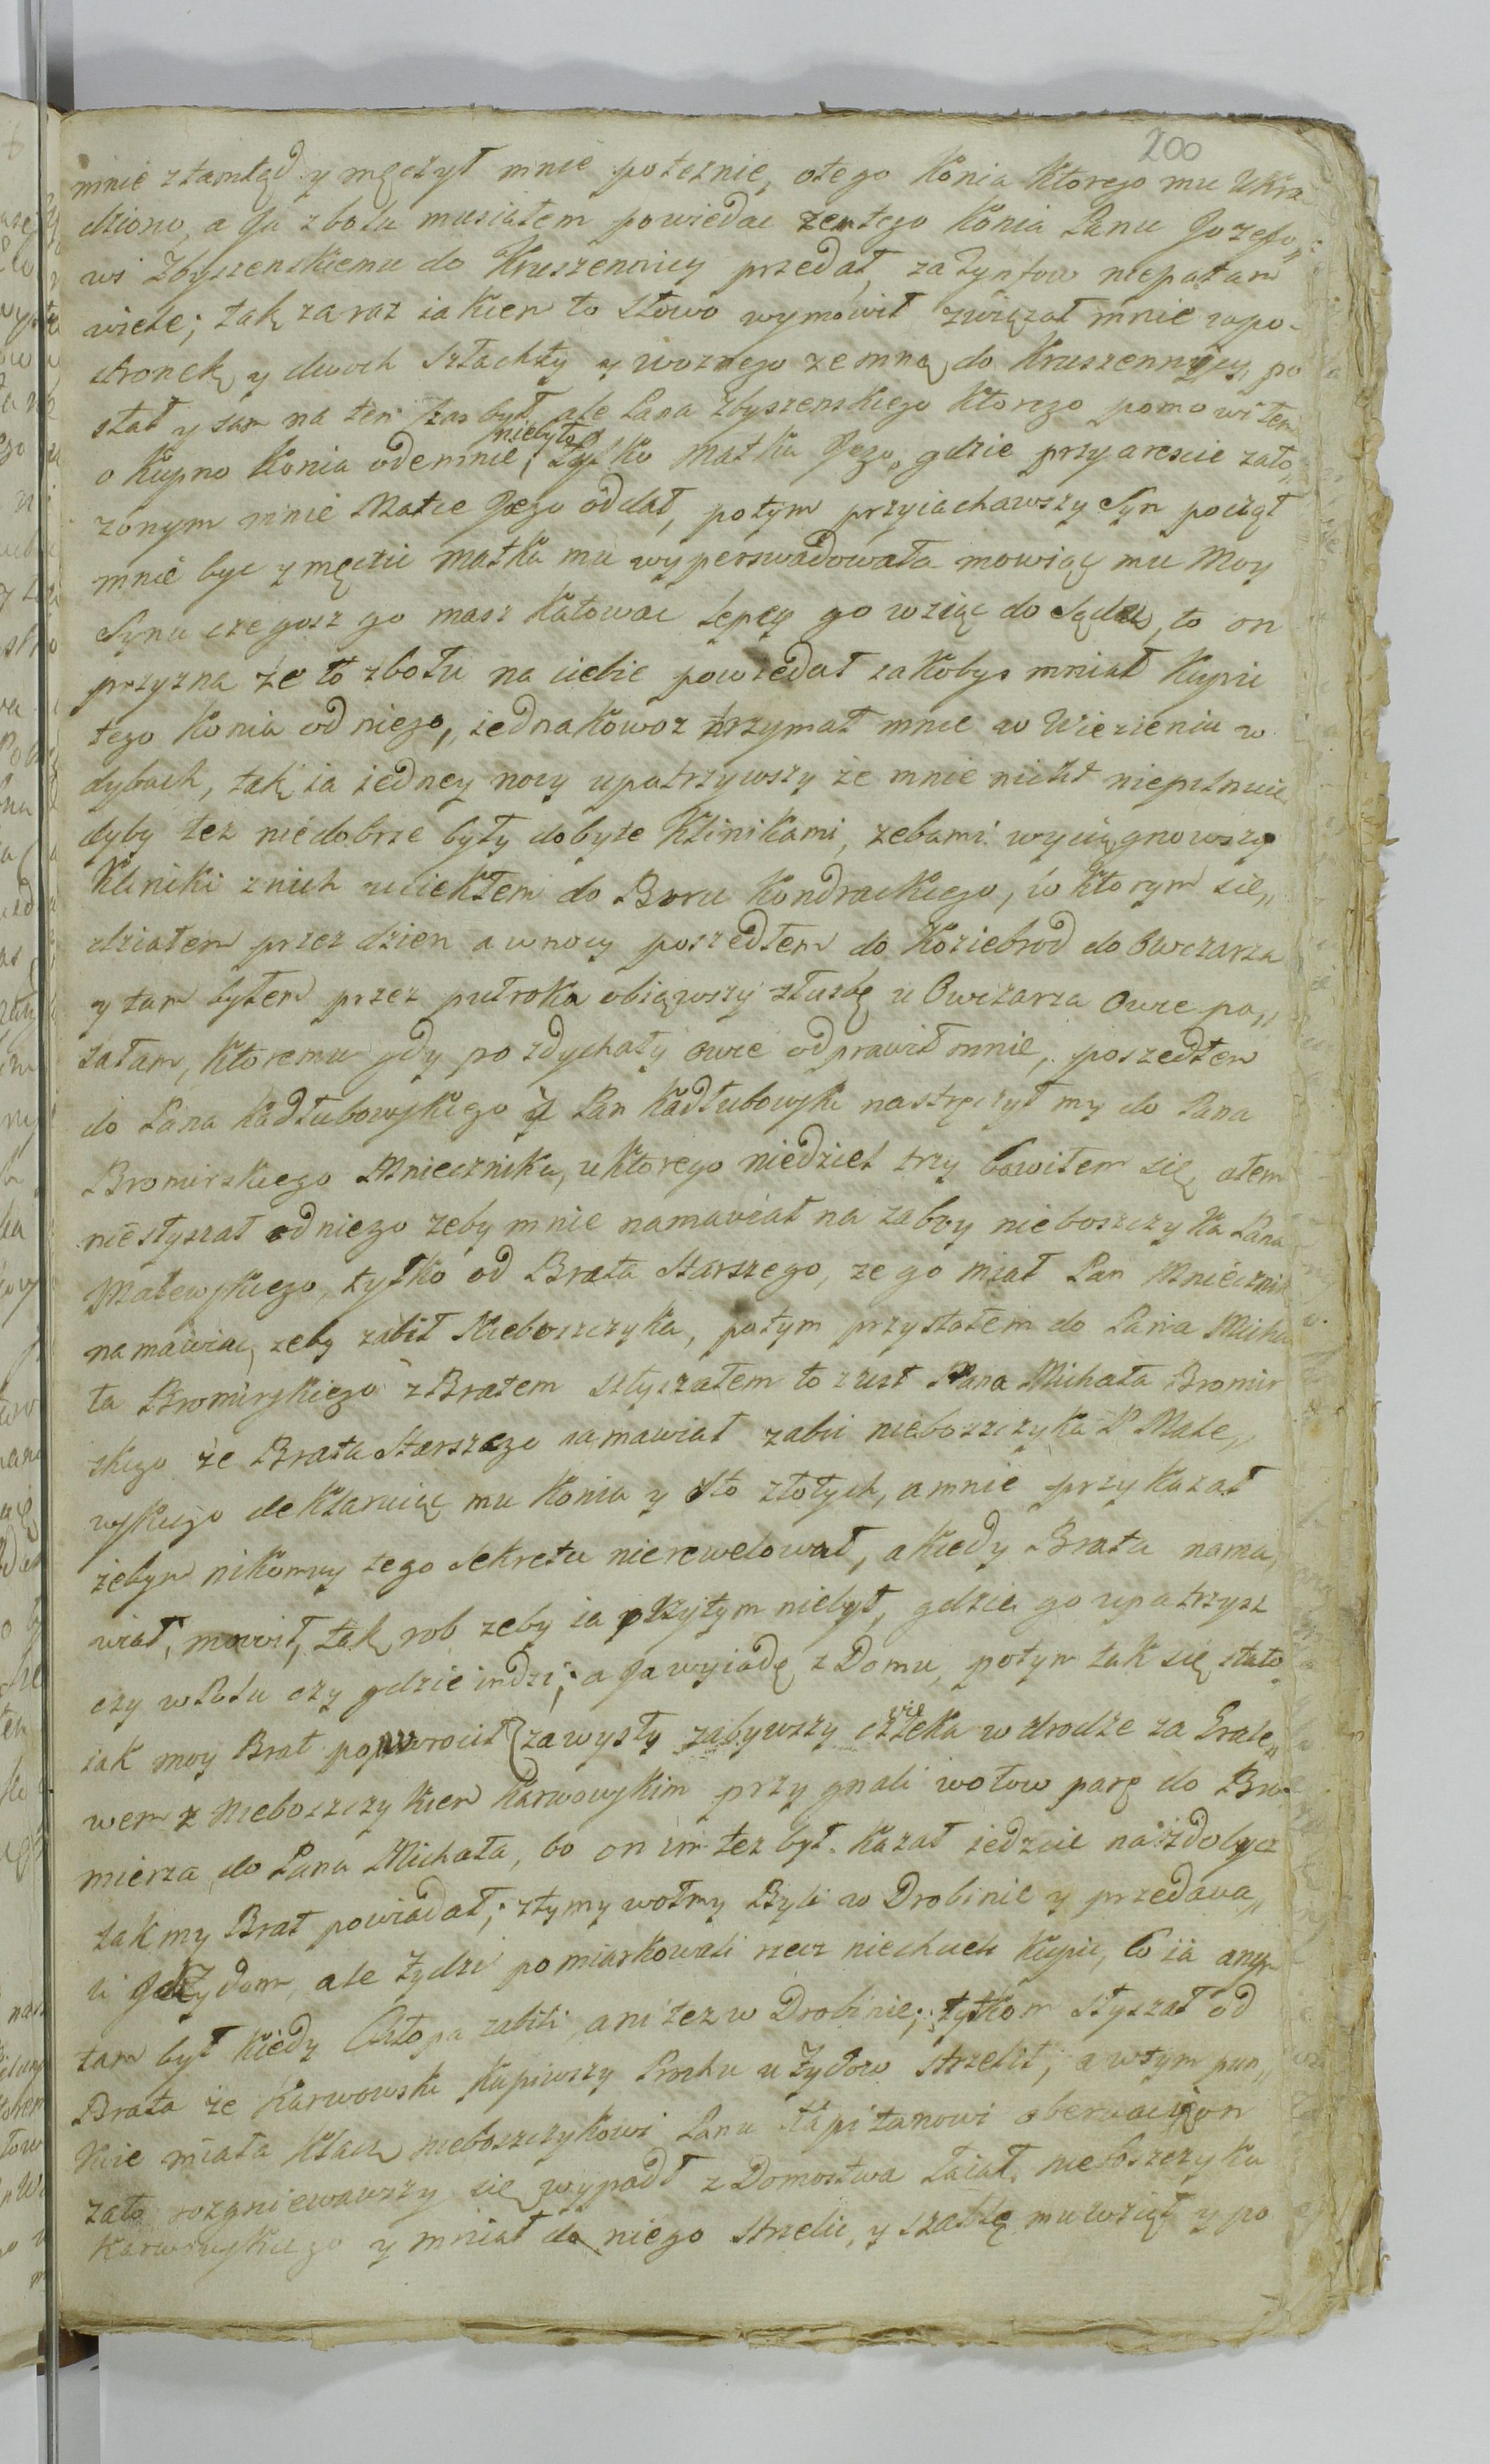 200
mnie ztamtąd y męczył mnie poteznie, otego Konia Ktorego mu Ukra
dziono, a Ja zbolu musiałem powiedac zemtego Konia Panu Jozefo„
wi Zbyszenskiemu do Kruszennicy przedał, za Tynfow niepałam
wiele; tak zaraz iakiem to Słowo wymowił związał mnie wpo-
stronek y dwoch Szlachty y woznego zemną do Kruszennycy, po
słał y sam na ten czas był ale Pana Zbyszenskiego Ktorego pomowiłem
niebyło
o Kupno Konia odemnie; tylko Matka Jego, gdzie przyarescie zało„
zonym mnie Matce Jego oddał, potym przyiachawszy Syn począł
mnie byc y męczic Matka mu wyperswadowała mowiąc mu Moy
Synu czegosz go masz Katowac lepcy go wziąc do Sądu, to on
przyzna że to zbolu na ciebie powiedał iakobys mniał Kupic
tego Konia od niego, iednakowoz trzymał mnie w Wiezieniu w
dybach, tak ia iedney nocy upatrzywszy że mnie nicht niepilnuie
dyby tez niedobrze były dobyte Klinikami, zebami wyciągnowszy
Kliniki znich uciekłem do Boru Kondrackiego, w Ktorym sie„
działem przez dzien a wnocy poszedłem do Koziebrod do Owczarza
y tam byłem przez putroka obiąwszy słuzbę u Owczarza Owce pa„
sałam, Ktoremu gdy pozdychały owce odprawił mnie, poszedłem
do Pana Kadłubowskiego y Pan Kadłubowski nastręczył my do Pana
Bromirskiego Mniecznika, u Ktorego niedziel trzy bawiłem się, alem
niesłyszał odniego zeby mnie namawiał na zaboy nieboszczyka Pana
Malewskiego, tylko od Brata Starszego, ze go miał Pan Mniecznik
namawiac, zeby zabił Nieboszczyka, potym przystałem do Pana Micha
ła Bromirskiego z Bratem słyszałem to zust Pana Michała Bromir
skigo że Brata Starszego namawiał zabic nieboszczyka P. Male„
wskiego deklaruiąc mu Konia y Sto złotych, a mnie przykazał
żebym nikomuy tego Sekretu nierewelował, a kiedy Brata nama„
wiał, mowił, tak rob zeby ia przytym niebył, gdzie go upatrzysz
czy w Polu czy gdzie indzi; a Ja wyiadę z Domu, potym tak się stało
iak moy Brat powrocił zawysły zabywszy człeka wdrodze za Srale„
wem z Nieboszczykiem Karwowskim przygnali wołow parę do Bro
mierza do Pana Michała, bo on im tez był Kazał iedzcie na zdobycz
tak my Brat powiadał; ztymy wołmy Byli w Drobinie y przedawa„
li Zydom, ale Zydzi pomiarkowali rzecz niechcieli Kupic, bo ia anim
tam był Kiedy Chłopa zabili, ani tez w Drobinie; tylkom słyszał od
Brata że Karwowski Kupiwszy Prochu u Zydow strzelił, a wtym pun„
Kcie miała Klacz nieboszczykowi Panu Kapitanowi oberwac on
zato rozgniewawszy się wypadł z Domostwa łaiał nieboszczyka
Karwowskiego y mniał do niego strzelic, y szablę mu wziął y po